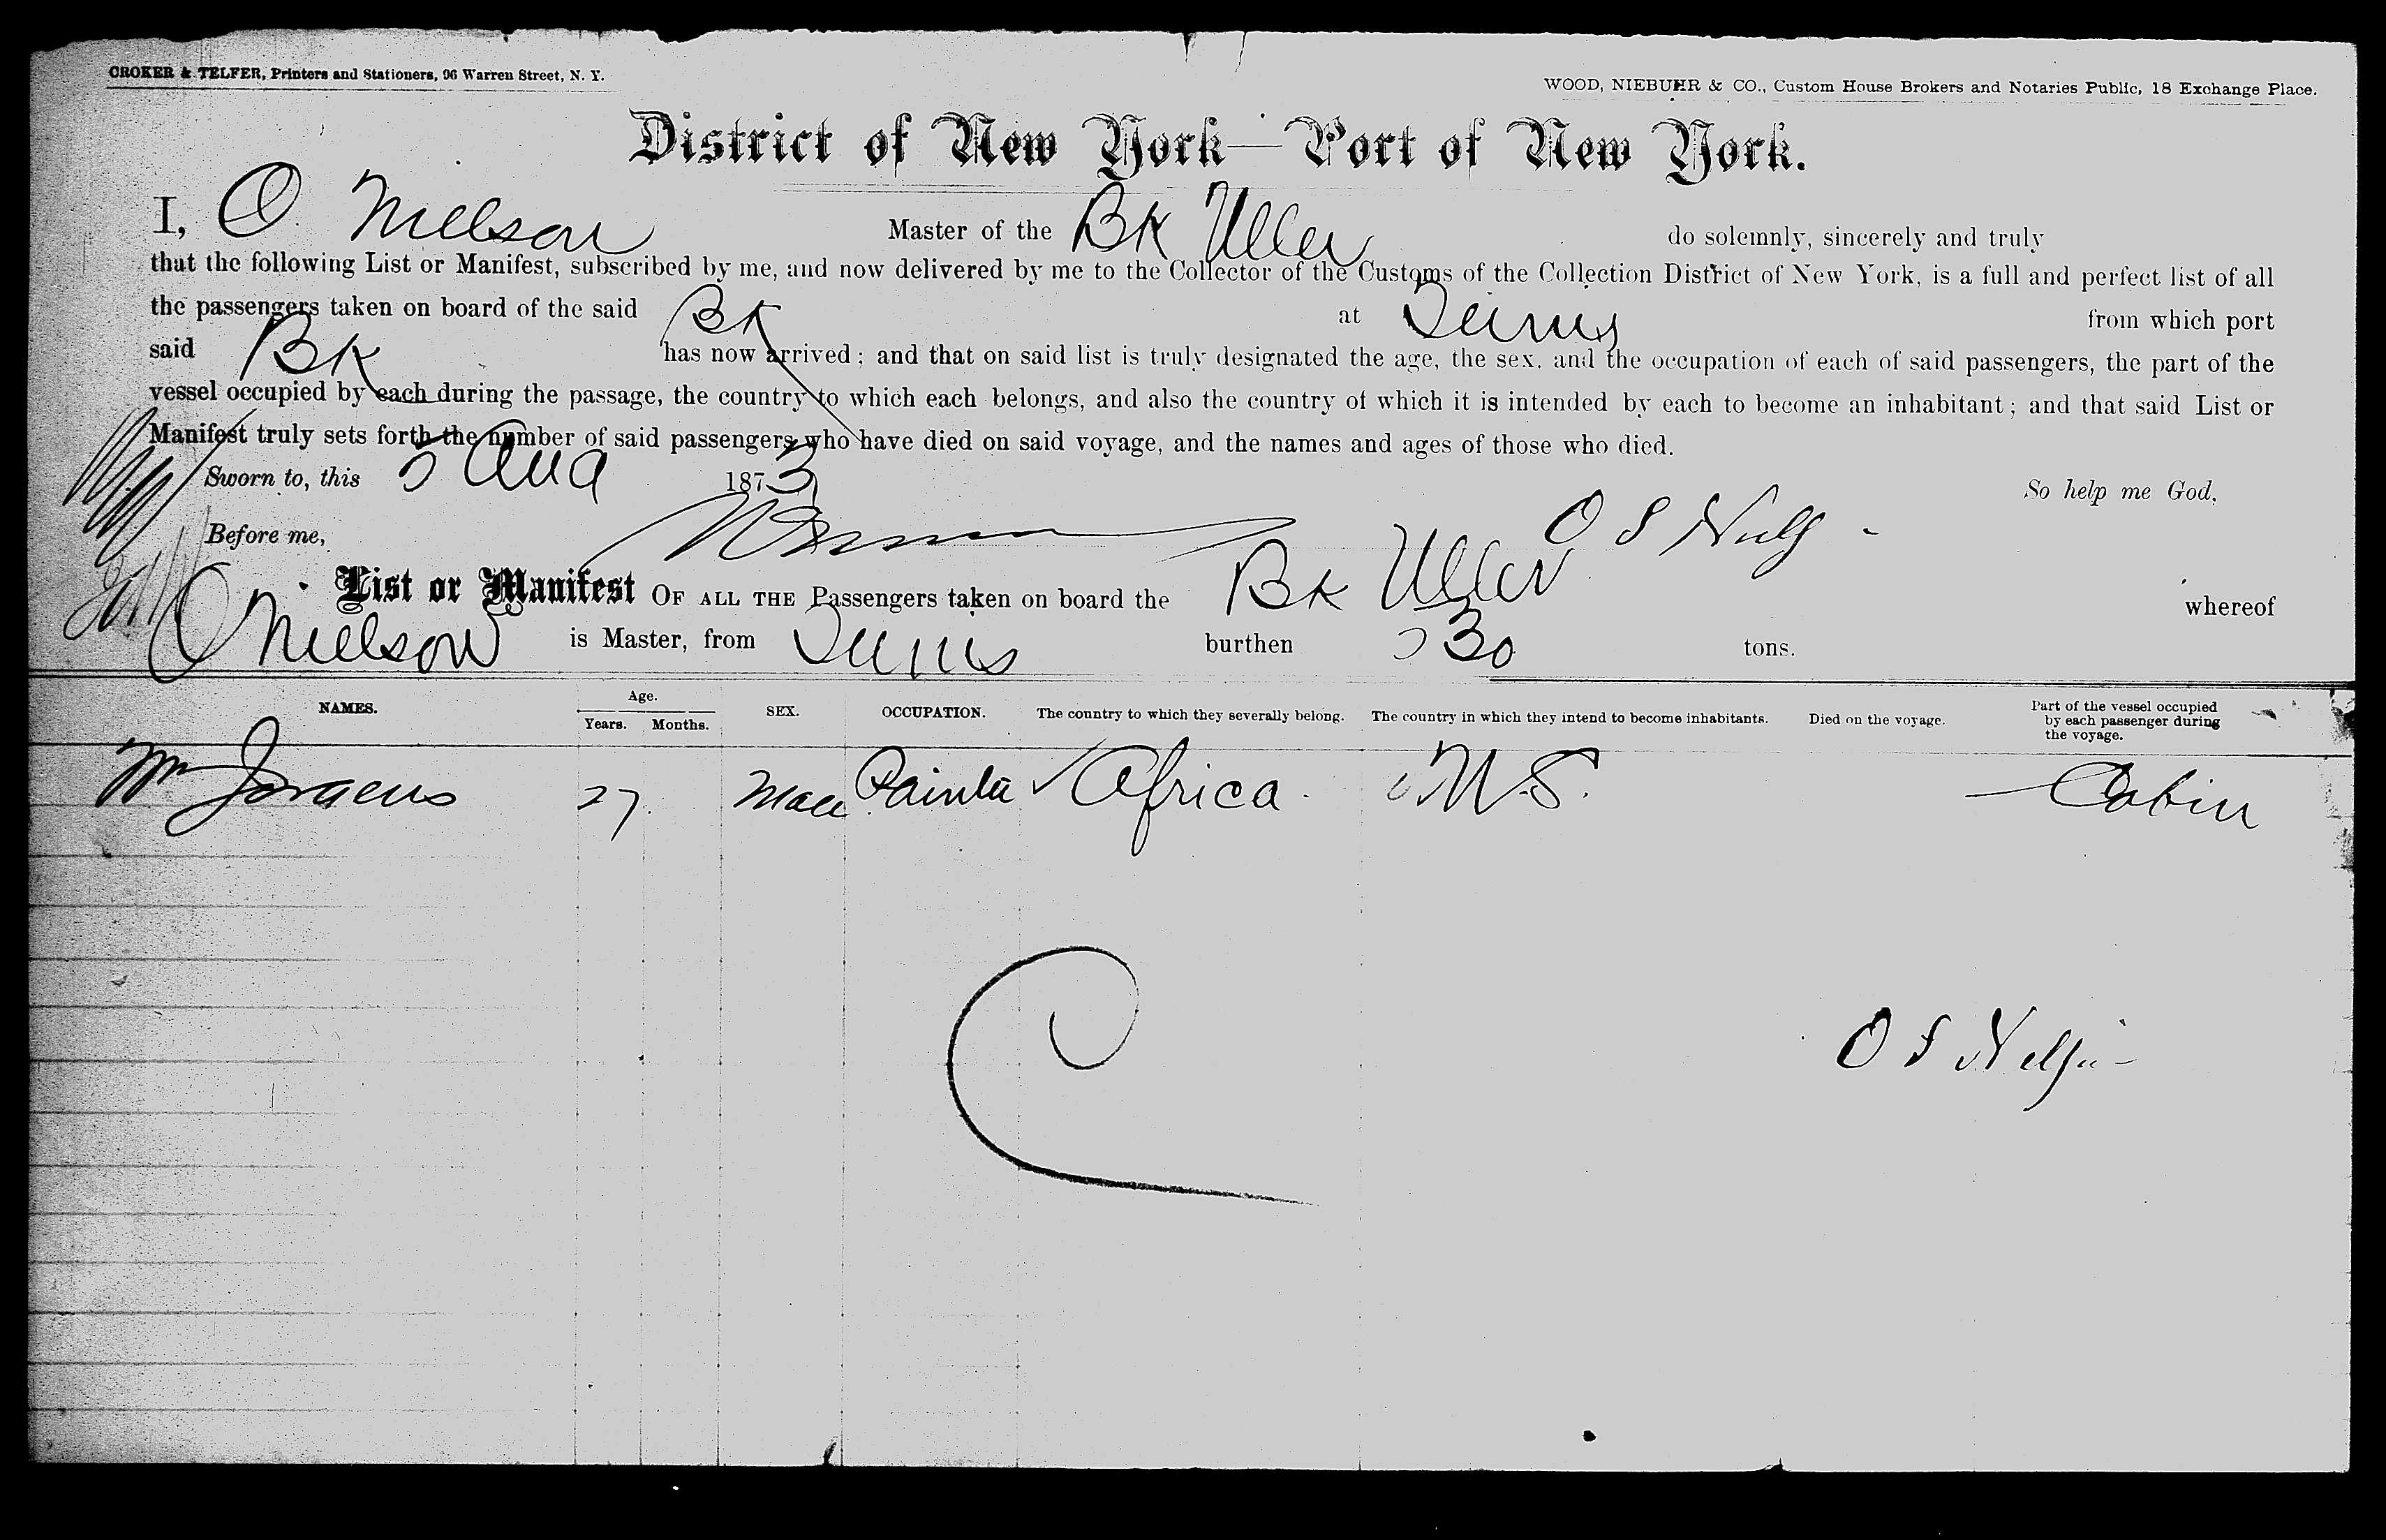 CROKER & TELFER, Printers and Stationers, 96 Warren Street, N. Y.
WOOD, NIEBUHR & CO., Custom House Brokers and Notaries Public, 18 Exchange Place.
District of New York—Port of New York.
I, O Nielson Master of the Bk Uller do solemnly, sincerely and truly
that the following List or Manifest, subscribed by me, and now delivered by me to the Collector of the Customs of the Collection District of New York, is a full and perfect list of all
the passengers taken on board of the said Bk at Tunis from which port
said Bk has now arrived; and that on said list is truly designated the age, the sex. and the occupation of each of said passengers, the part of the
vessel occupied by each during the passage, the country to which each belongs, and also the country of which it is intended by each to become an inhabitant; and that said List or
Manifest truly sets forth the number of said passengers who have died on said voyage, and the names and ages of those who died.
Sworn to, this 5 Aug 1873 So help me God,
Before me, O S
List or Manifest OF ALL THE Passengers taken on board the Bk Uller whereof
O Nielson is Master, from Tunis burthen 530 tons.
NAMES. Age. Years. Months. SEX. OCCUPATION. The country to which they severally belong. The country in which they intend to become inhabitants. Died on the voyage. Part of the vessel occupied by each passenger during the voyage.
Wm Jorgens 27. Male Painter Africa. U.S. Cabin
O S